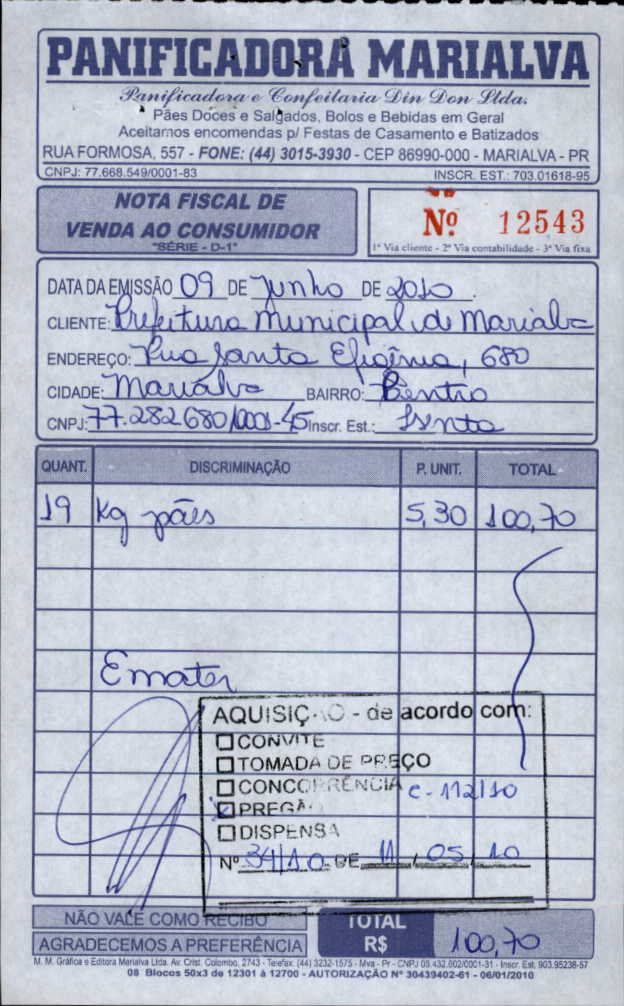 PANIFICADORA MARIALVA
Panificadora e Confeitaria Din Don Ltda.
Pães Doces e Salgados, Bolos e Bebidas em Geral
Aceitamos encomendas p/ Festas de Casamento e Batizados
RUA FORMOSA, 557 - FONE: (44) 3015-3930 - CEP 86990-000 - MARIALVA - PR
CNPJ: 77.668.549/0001-83 INSCR. EST.: 703.01618-95
NOTA FISCAL DE
VENDA AO CONSUMIDOR
"SÉRIE - D-1"
Nº 12543
1ª Via cliente - 2ª Via contabilidade - 3ª Via fixa
DATA DA EMISSÃO 09 DE Junho DE 2010
CLIENTE: Prefeitura Municipal de Marialva
ENDEREÇO: Rua Santa Efigênia, 680
CIDADE: Marialva BAIRRO: Centro
CNPJ: 77.282.680/0001-45 Inscr. Est.: Isento
QUANT. DISCRIMINAÇÃO P. UNIT. TOTAL
19 Kg pães 5,30 100,70
Emater
AQUISIÇÃO - de acordo com:
CONVITE
TOMADA DE PREÇO
CONCORRÊNCIA c-112/10
PREGÃO
DISPENSA
Nº 34/10 DE 11 / 05 / 10
NÃO VALE COMO RECIBO
AGRADECEMOS A PREFERÊNCIA
TOTAL
R$ 100,70
M. M. Gráfica e Editora Marialva Ltda. Av. Crist. Colombo, 2743 - Telefax: (44) 3232-1575 - Mva - Pr - CNPJ 05.432.602/0001-31 - Inscr. Est. 903.95238-57
08 Blocos 50x3 de 12301 à 12700 - AUTORIZAÇÃO Nº 30439402-61 - 06/01/2010